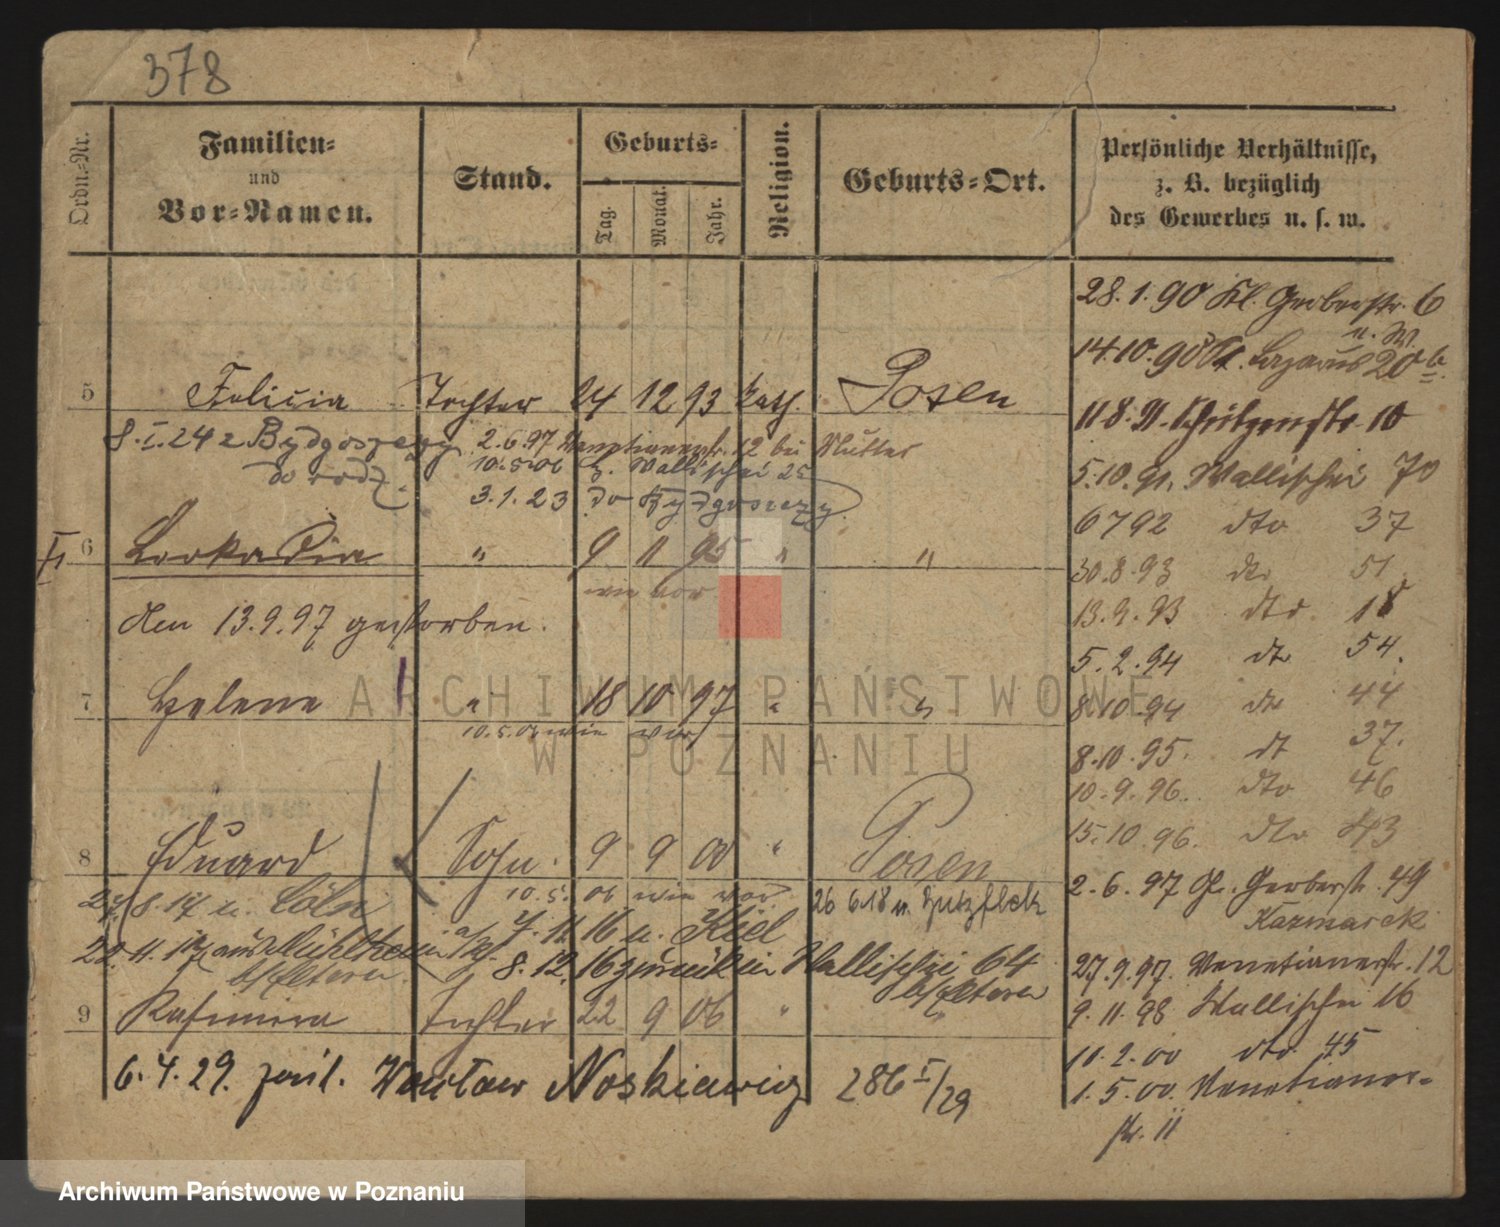 378
Ordn.-Nr.
Familien-
und
Vor-Namen.
Stand.
Geburts-
Tag.
Monat.
Jahr.
Religion.
Geburts-Ort.
Persönliche Verhältnisse,
z. B. bezüglich
des Gewerbes u. s. w.
28.1.90 Kl. Gerberstr. 6
14.10.90 St. Lazarus 20b
11.8.91 Schützenstr. 10
5 Felicia Tochter 24 12 93 kath. Posen
8.I.24 z Bydgoszczy 2.6.97 Venetianerstr. 12 bei Mutter
5.10.91. Wallischei 70
do rodz. 10.5.06 z. Wallischei 25
3.1.23 do Bydgoszczy
6792 dto 37
6 Leokadia " 9 11 95 " "
30.8.93 dto 51
wie vor
13.9.93 dto 18
den 13.9.97 gestorben.
5.2.94 dto 54.
7 Helene " 18 10 97 " "
8.10.94 dto 44
10.5.06 wie vor
8.10.95. dt 37.
10.9.96. dto 46
15.10.96. dto 43
8 Eduard Sohn. 9 9 00 " Posen
10.5.06 wie vor
2.6.97 Gr. Gerberstr. 49
Kazmarek
8.17 u. Cöln
7.11.16 u. Kiel
26 6.18 u.
22.11.17 aus Mülheim
b/Eltern.
8.12.16 zurück in Wallischei 64
b/Eltern
27.9.97. Venetianerstr. 12
9 Kasimira Tochter 22 9 06 " "
9.11.98 Wallischei 16
10.2.00 dto 45
6.4.29. Wacław Noskiewicz 286 I/29
1.5.00. Venetianer-
str. 11
ARCHIWUM PAŃSTWOWE
W POZNANIU
Archiwum Państwowe w Poznaniu